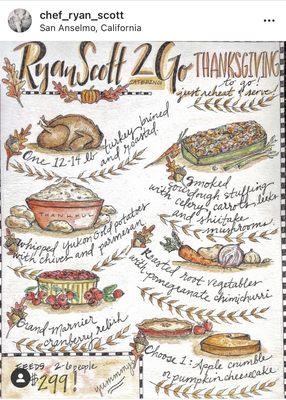 chef_ryan_scott
San Anselmo, California
RyanScott 2 Go
CATERING
THANKSGIVING
to go!
just reheat & serve!
One 12-14 lb turkey brined
and roasted
Smoked
sourdough stuffing
with celery, carrots, leeks
and shiitake
mushrooms
THANKFUL
whipped Yukon Gold potatoes
with chives and parmesan
Roasted root vegetables
with pomegranate chimichurri
Grand Marnier
cranberry relish
Choose 1: Apple crumble
or pumpkin cheesecake
FEEDS 2-6 people
$299!
yummmy!